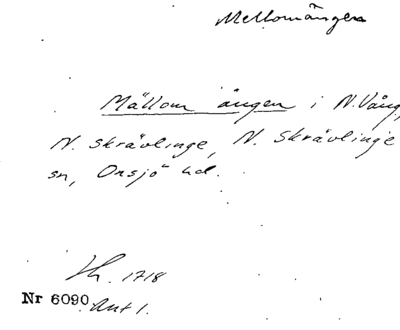 Mellomängen
Mällom ängen i N. Vång,
N. Skrävlinge, N. Skrävlinge
sn, Onsjö hd.
Lh. 1718
Nr 6090 Ant 1.